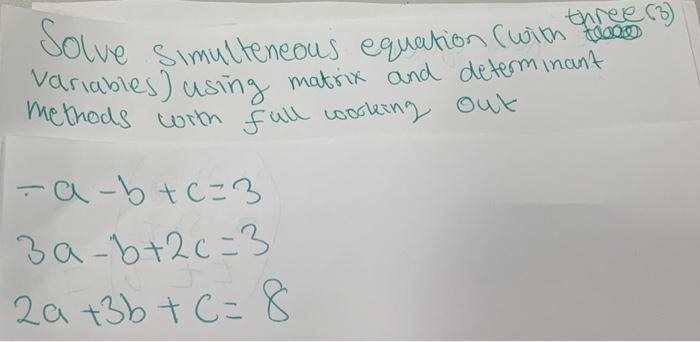 Solve simulteneous equation (with three (3)
variables) using matrix and determinant
methods with full working out
-a-b+c=3
3a-b+2c=3
2a+3b+c=8